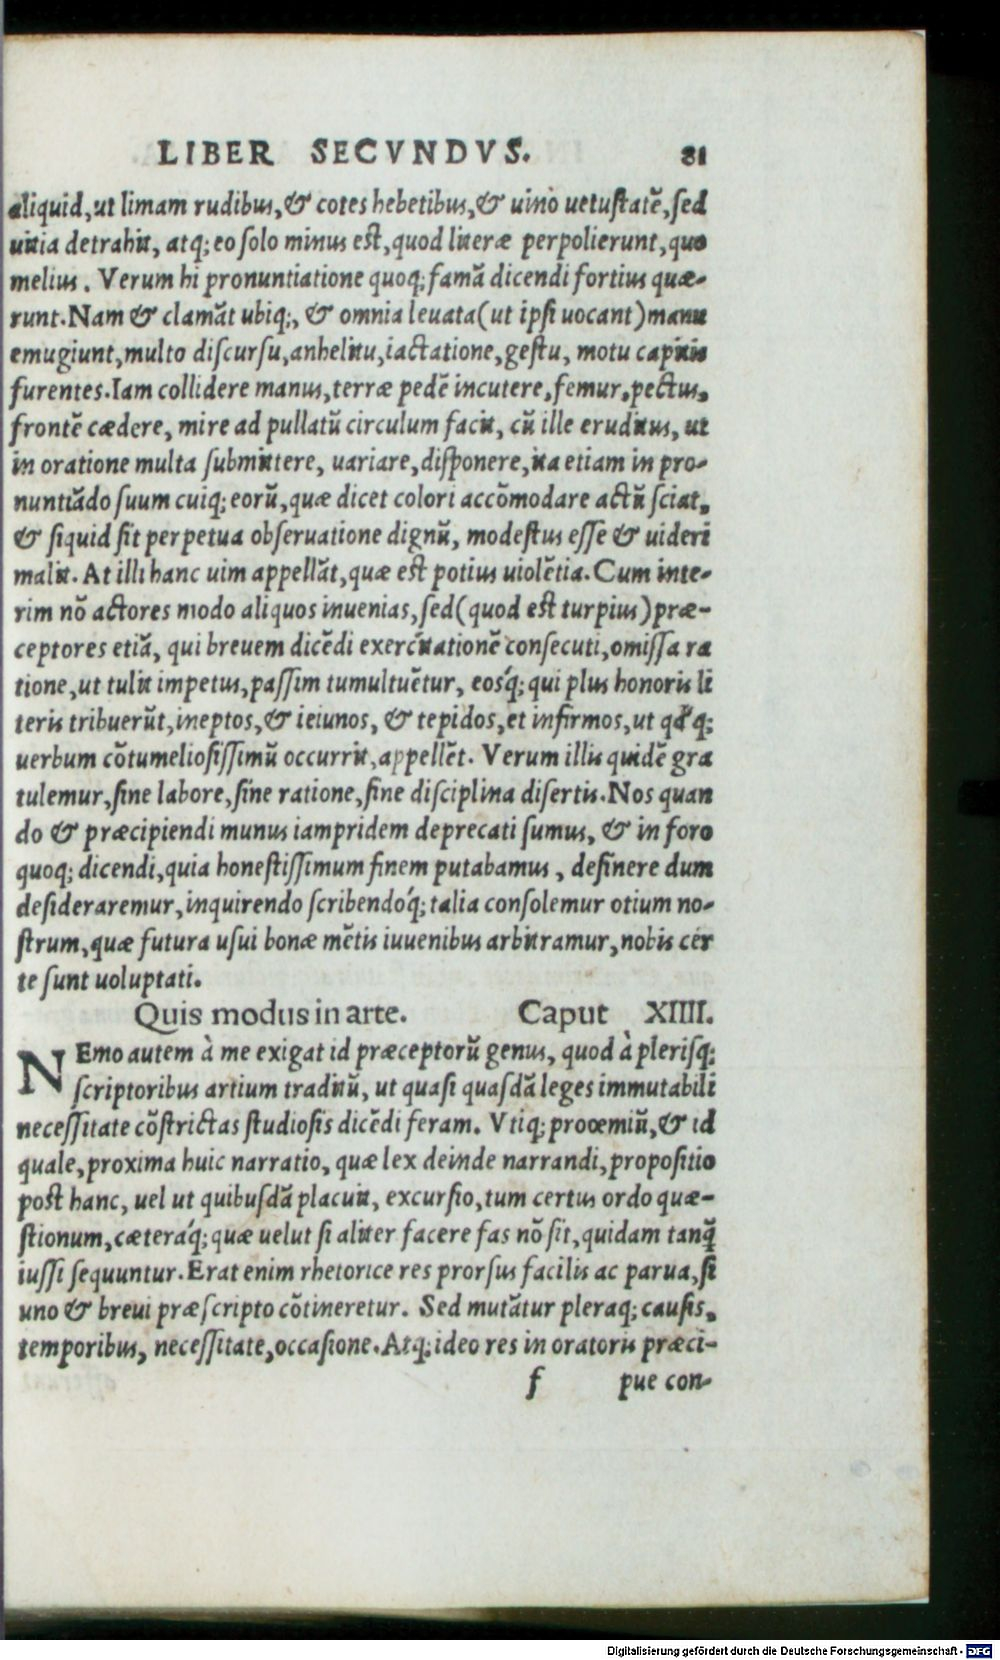 LIBER SECVNDVS. 81
aliquid, ut limam rudibus, & cotes hebetibus, & uino uetustatē, sed
uitia detrahit, atq; eo solo minus est, quod literæ perpolierunt, quo
melius. Verum hi pronuntiatione quoq; famā dicendi fortius quæ-
runt. Nam & clamāt ubiq;, & omnia leuata (ut ipsi uocant) manu
emugiunt, multo discursu, anhelitu, iactatione, gestu, motu capitis
furentes. Iam collidere manus, terræ pedē incutere, femur, pectus,
frontē cædere, mire ad pullatū circulum facit, cū ille eruditus, ut
in oratione multa submittere, uariare, disponere, ita etiam in pro-
nuntiādo suum cuiq; eorū, quæ dicet colori accōmodare actū sciat,
& siquid sit perpetua obseruatione dignū, modestus esse & uideri
malit. At illi hanc uim appellāt, quæ est potius uiolētia. Cum inte-
rim nō actores modo aliquos inuenias, sed (quod est turpius) præ-
ceptores etiā, qui breuem dicēdi exercitationē consecuti, omissa ra
tione, ut tulit impetus, passim tumultuētur, eosq́; qui plus honoris li
teris tribuerūt, ineptos, & ieiunos, & tepidos, et infirmos, ut qdq;
uerbum cōtumeliosissimū occurrit, appellēt. Verum illis quidē gra
tulemur, sine labore, sine ratione, sine disciplina disertis. Nos quan
do & præcipiendi munus iampridem deprecati sumus, & in foro
quoq; dicendi, quia honestissimum finem putabamus, desinere dum
desideraremur, inquirendo scribendoq́; talia consolemur otium no-
strum, quæ futura usui bonæ mētis iuuenibus arbitramur, nobis cer
te sunt uoluptati.
Quis modus in arte. Caput XIIII.
NEmo autem à me exigat id præceptorū genus, quod à plerisq;
scriptoribus artium traditū, ut quasi quasdā leges immutabili
necessitate cōstrictas studiosis dicēdi feram. Vtiq; prooemiū, & id
quale, proxima huic narratio, quæ lex deinde narrandi, propositio
post hanc, uel ut quibusdā placuit, excursio, tum certus ordo quæ-
stionum, cæteraq́; quæ uelut si aliter facere fas nō sit, quidam tanq̄
iussi sequuntur. Erat enim rhetorice res prorsus facilis ac parua, si
uno & breui præscripto cōtineretur. Sed mutātur pleraq; causis,
temporibus, necessitate, occasione. Atq; ideo res in oratoris præci-
f pue con-
Digitalisierung gefördert durch die Deutsche Forschungsgemeinschaft - DFG